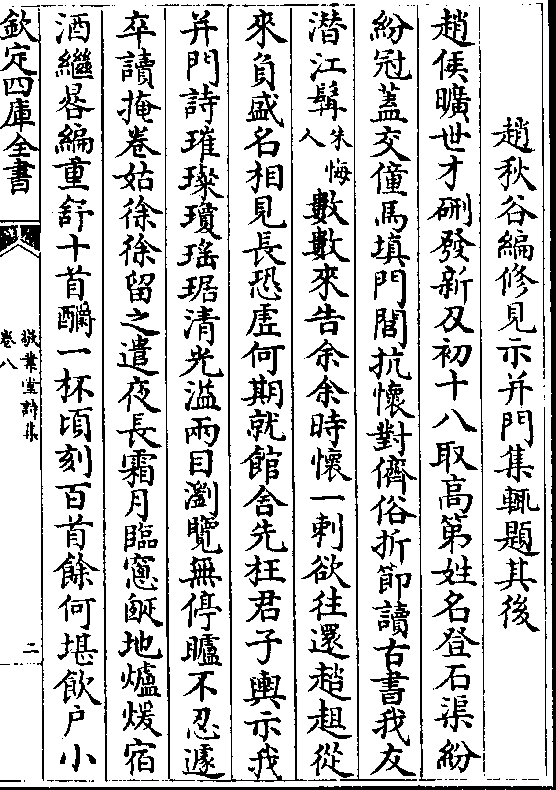 趙秋谷編修見示并門集輒題其後
趙侯曠世才硎發新及初十八取高第姓名登石渠紛
紛冠蓋交僮馬填門閭抗懷對儕俗折節讀古書我友
潛江髯朱悔人數數來告余余時懷一刺欲往還趑趄從
來負盛名相見長恐虛何期就館舍先枉君子輿示我
并門詩璀璨瓊瑤琚清光溢兩目瀏覽無停臚不忍遽
卒讀掩卷姑徐徐留之遣夜長霜月臨窻甌地爐煖宿
酒繼晷編重舒十首釂一杯頃刻百首餘何堪飲户小
欽定四庫全書
敬業堂詩集
卷八
二